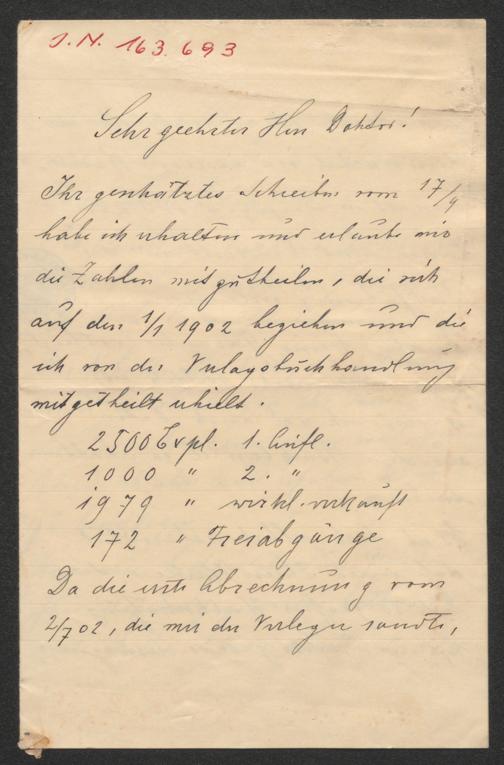 J.N. 163.693
Sehr geehrter Herr Doktor!
Ihr geschätztes Schreiben vom 17/9
habe ich erhalten und erlaube mir
die Zahlen mitzutheilen, die sich
auf den 1/1 1902 beziehen und die
ich von der Verlagsbuchhandlung
mitgetheilt erhielt.
2500 Expl. 1. Aufl.
1000 " 2. "
1979 " wirkl. verkauft
172 " Freiabgänge
Da die erste Abrechnung vom
2/7 02, die mir der Verleger sandte,